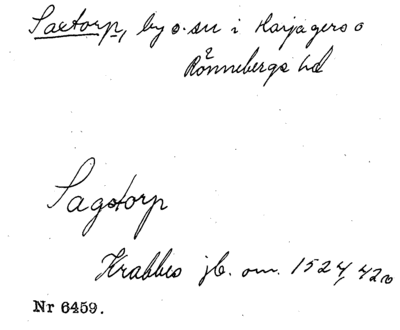 Saxtorp, by o. sn i Harjagers o
Rönnebergs hd
Sagstorp
Krabbes jb. om. 1524, 42
Nr 6459.